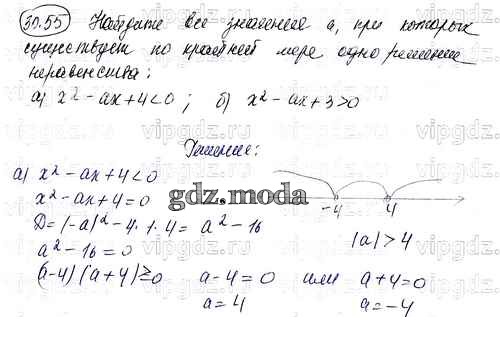 30.55 Найдите все значения a, при которых
существует по крайней мере одно решение
неравенства:
а) x² - ax + 4 < 0; б) x² - ax + 3 > 0
Решение:
а) x² - ax + 4 < 0
x² - ax + 4 = 0
D = (-a)² - 4·1·4 = a² - 16
a² - 16 = 0
(a-4)(a+4) ≥ 0 a - 4 = 0 или a + 4 = 0
a = 4 a = -4
-4 4
|a| > 4
gdz.moda
vipgdz.ru vipgdz.ru vipgdz.ru